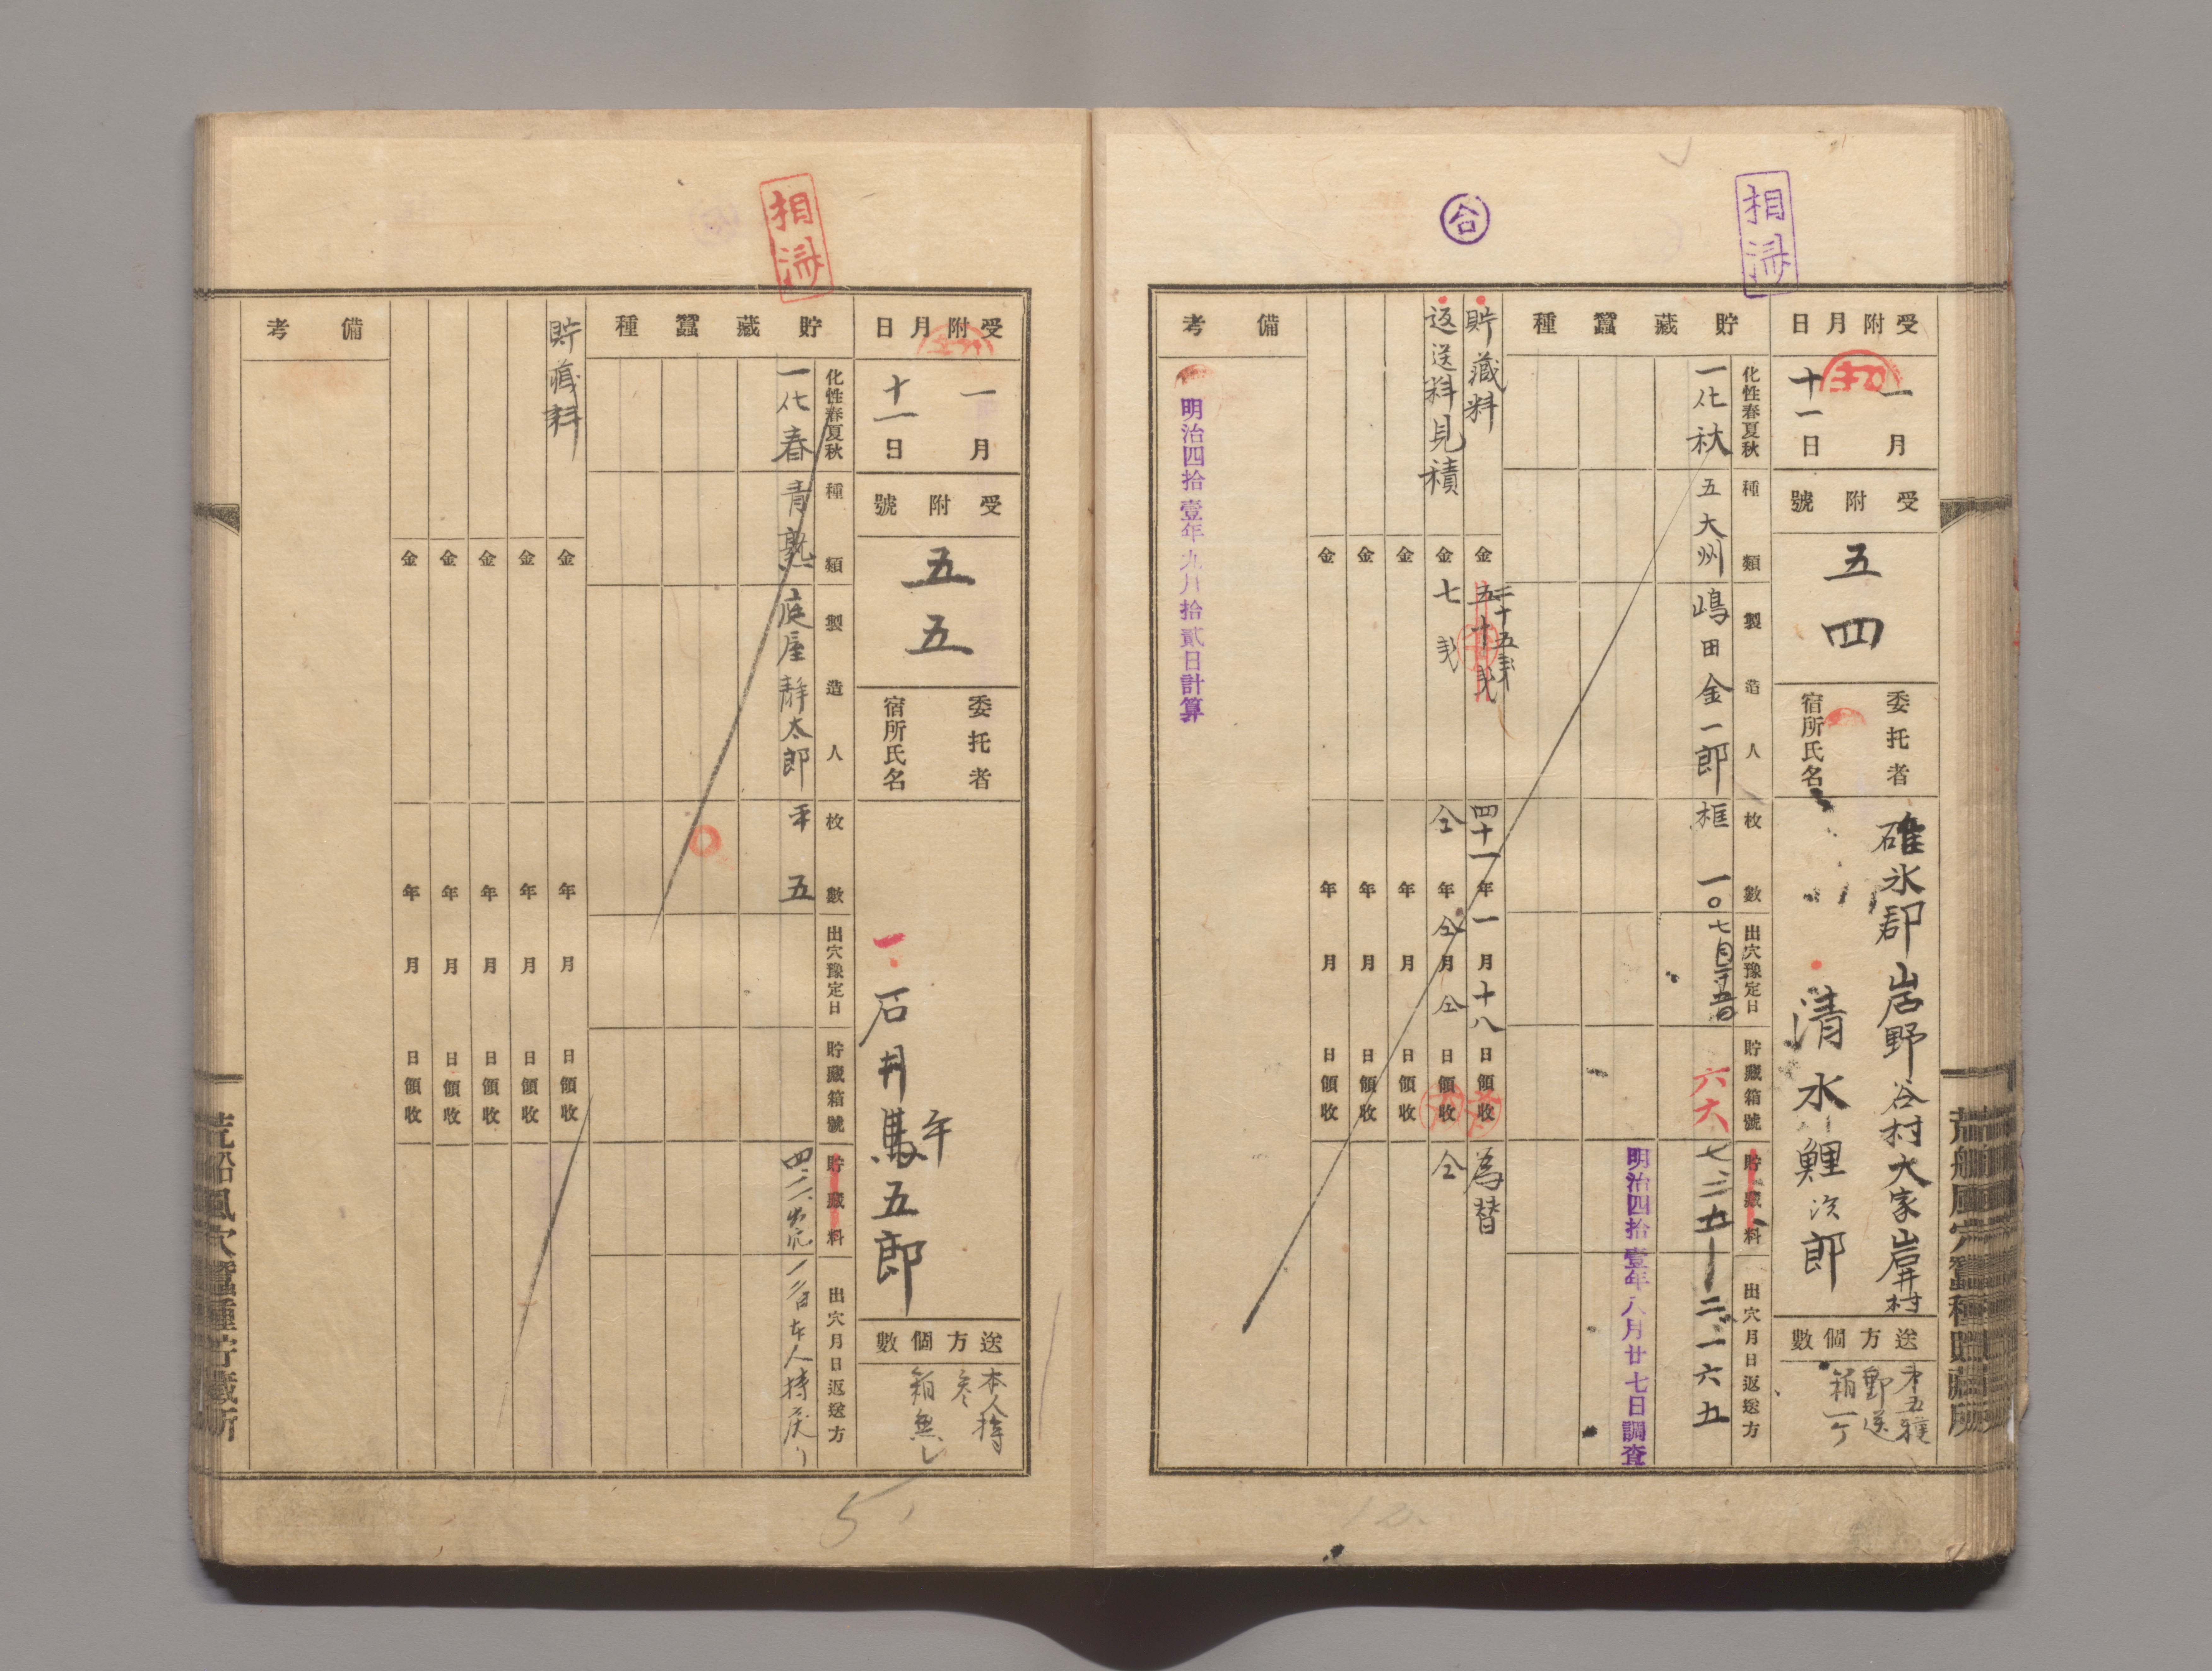 相済
合
受附月日
一月
十一日
受附號
五四
委托者
宿所氏名
碓氷郡岩野谷村大字岩井村
清水鯉次郎
送方個數
郵送
箱一ケ
貯藏蠶種
化性春夏秋
種類
製造人
枚數
出穴豫定日
貯藏箱號
貯藏料
出穴月日返送方
一化秋
五大州
嶋田金一郎
框一〇
六六
七、三五
二、一六五
明治四拾壹年八月廿七日調査
貯藏料
金五十戔
二十五戔
四十一年一月十八日領收
為替
返送料見積
金七戔
仝年仝月仝日領收
仝
金 年 月 日領收
金 年 月 日領收
金 年 月 日領收
備考
明治四拾壹年九月拾貳日計算
荒船風穴蠶種貯藏所
相済
受附月日
一月
十一日
受附號
五五
委托者
宿所氏名
石井馬五郎
午
送方個數
本人持
参
箱無し
貯藏蠶種
化性春夏秋
種類
製造人
枚數
出穴豫定日
貯藏箱號
貯藏料
出穴月日返送方
一化春
青熟
庭屋静太郎
平五
本人持
貯藏料
金 年 月 日領收
金 年 月 日領收
金 年 月 日領收
金 年 月 日領收
金 年 月 日領收
備考
荒船風穴蠶種貯藏所
5